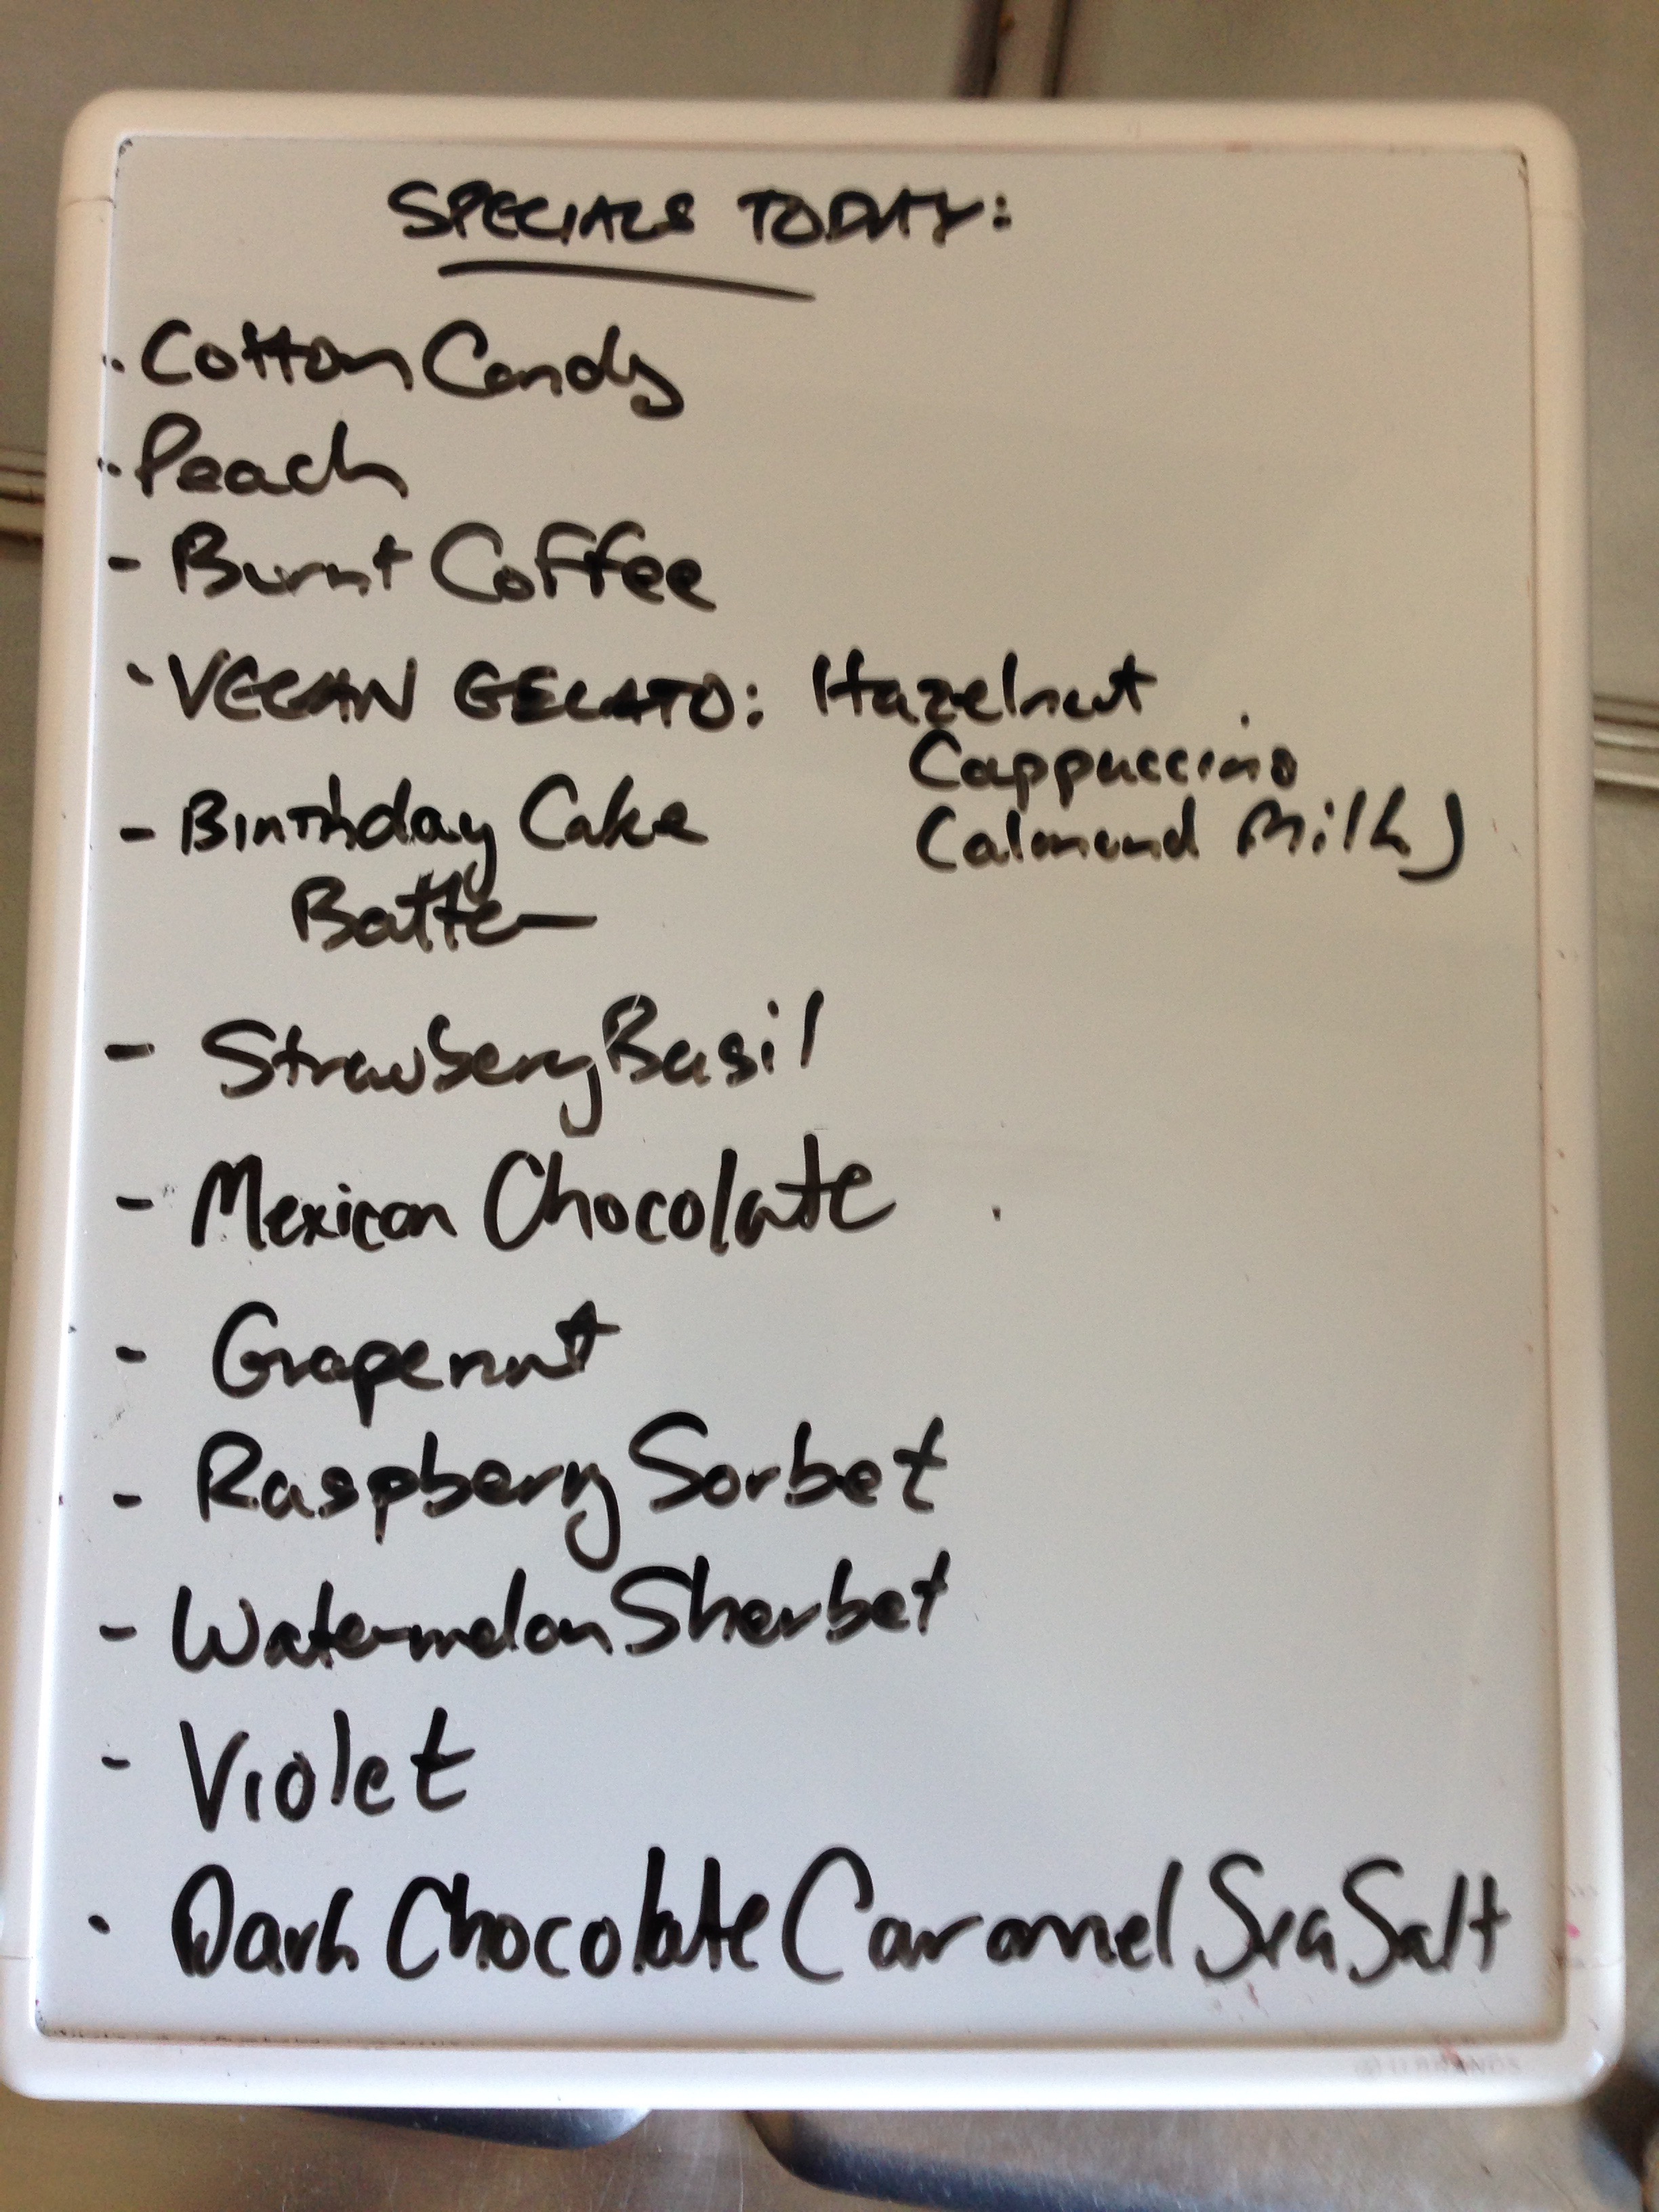 SPECIALS TODAY:
· Cotton Candy
· Peach
- Burnt Coffee
· VEGAN GELATO: Hazelnut
Cappuccino
(almond Milk)
- Birthday Cake
Batter
- Strawberry Basil
- Mexican Chocolate
- Grapenut
- Raspberry Sorbet
- Watermelon Sherbet
- Violet
· Dark Chocolate Caramel Sea Salt